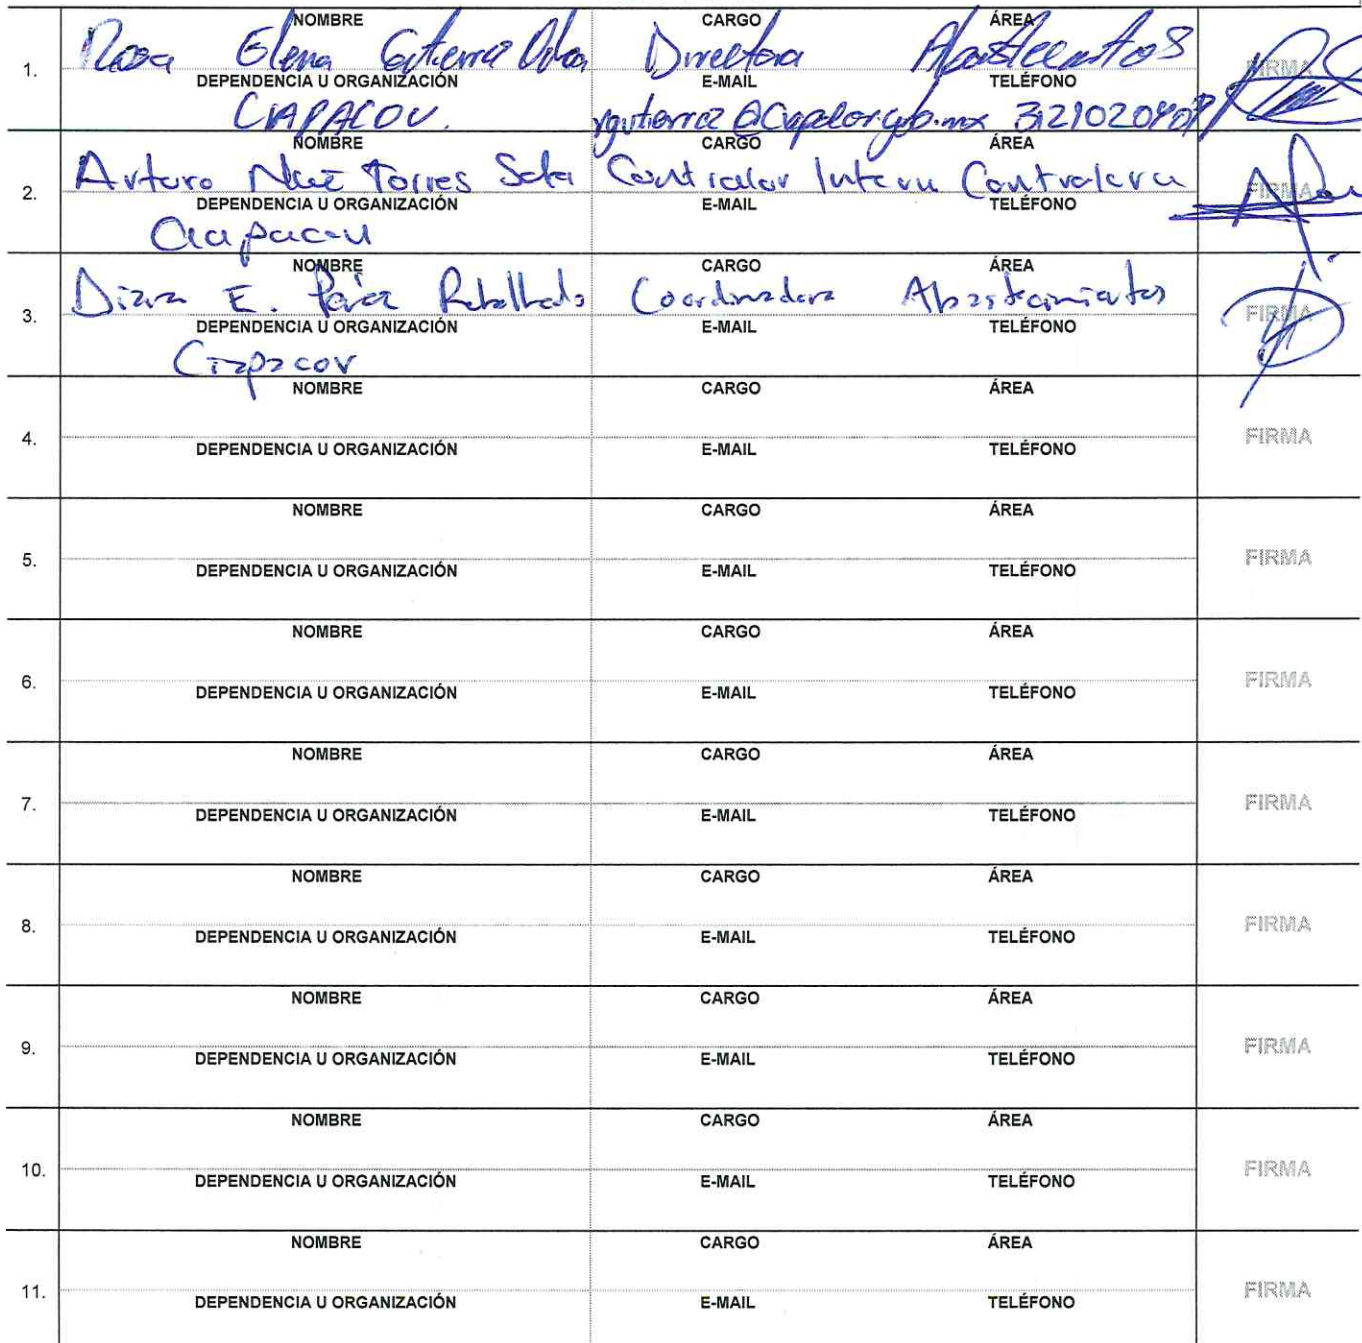 NOMBRE CARGO ÁREA
Rosa Elena Directora
1. FIRMA
DEPENDENCIA U ORGANIZACIÓN E-MAIL TELÉFONO
CIAPACOV.
NOMBRE CARGO ÁREA
Arturo Torres Contralor Contralora
2. FIRMA
DEPENDENCIA U ORGANIZACIÓN E-MAIL TELÉFONO
Ciapacov
NOMBRE CARGO ÁREA
Diana E. Coordinadora
3. FIRMA
DEPENDENCIA U ORGANIZACIÓN E-MAIL TELÉFONO
Ciapacov
NOMBRE CARGO ÁREA
4. FIRMA
DEPENDENCIA U ORGANIZACIÓN E-MAIL TELÉFONO
NOMBRE CARGO ÁREA
5. FIRMA
DEPENDENCIA U ORGANIZACIÓN E-MAIL TELÉFONO
NOMBRE CARGO ÁREA
6. FIRMA
DEPENDENCIA U ORGANIZACIÓN E-MAIL TELÉFONO
NOMBRE CARGO ÁREA
7. FIRMA
DEPENDENCIA U ORGANIZACIÓN E-MAIL TELÉFONO
NOMBRE CARGO ÁREA
8. FIRMA
DEPENDENCIA U ORGANIZACIÓN E-MAIL TELÉFONO
NOMBRE CARGO ÁREA
9. FIRMA
DEPENDENCIA U ORGANIZACIÓN E-MAIL TELÉFONO
NOMBRE CARGO ÁREA
10. FIRMA
DEPENDENCIA U ORGANIZACIÓN E-MAIL TELÉFONO
NOMBRE CARGO ÁREA
11. FIRMA
DEPENDENCIA U ORGANIZACIÓN E-MAIL TELÉFONO